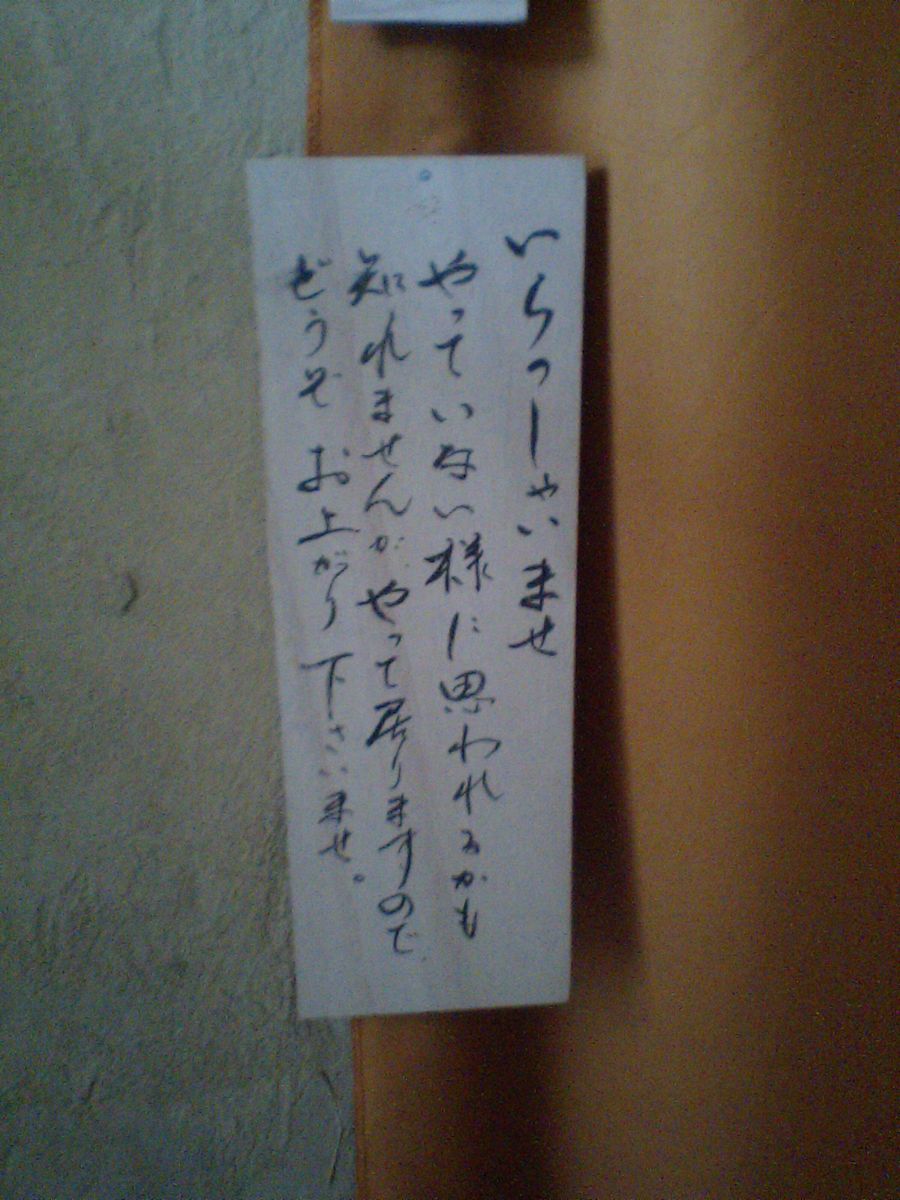 いらっしゃいませ
やっていない様に思われるかも
知れませんが、やって居りますので
どうぞお上がり下さいませ。